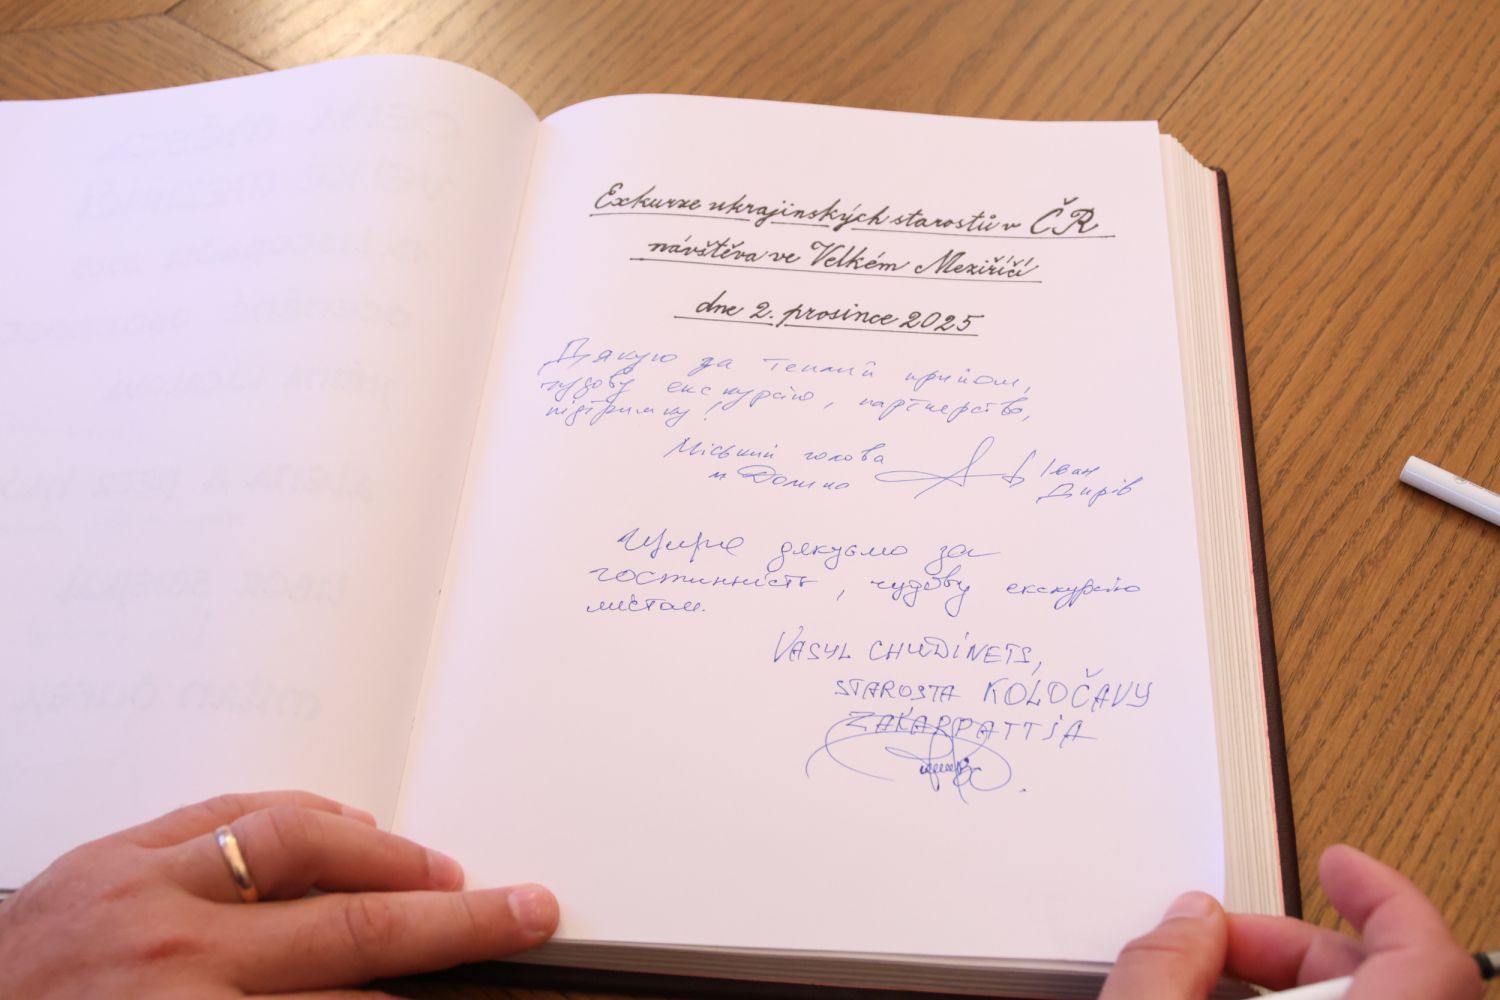 Exkurze ukrajinských starostů v ČR
návštěva ve Velkém Meziříčí
dne 2. prosince 2025
Дякую за теплий прийом,
чудову екскурсію, партнерство,
підтримку!
Міський голова Іван
м Долина Дирів
Щиро дякуємо за
гостинність, чудову екскурсію
містом.
VASYL CHUDINETS,
STAROSTA KOLOČAVY
ZAKARPATTIA